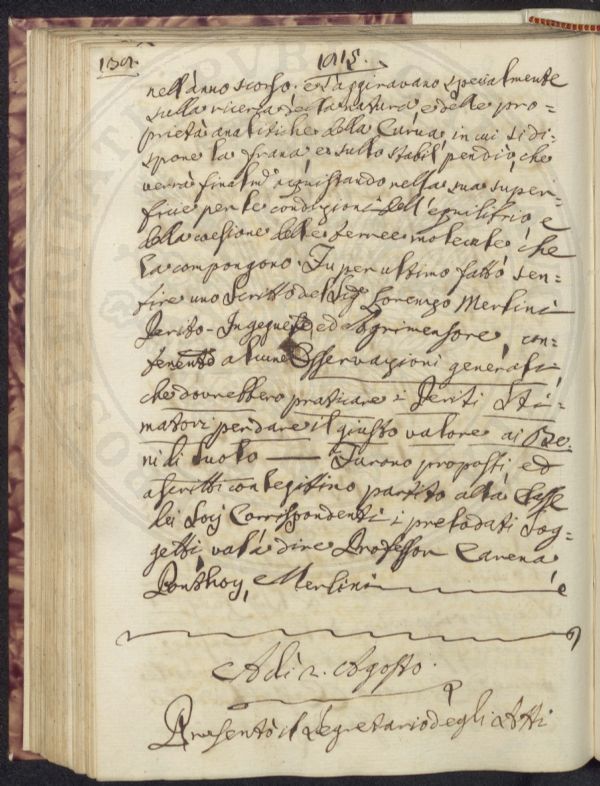 139. 1815.
nell'anno scorso. e s'aggiravano specialmente
sulla ricerca della natura e delle pro=
prietà analitiche della Curva in cui si di=
spone la frana e sullo stabil pendio, che
verrà finalm.e acquistando nella sua super=
ficie per le condizioni dell'equilibrio, e
della coesione delle terree molecule, che
la compongono. Fu per ultimo fatto sen=
tire uno Scritto del Sig.e Lorenzo Merlini
Perito-Ingegnere, ed Agrimensore, con=
tenente alcune Osservazioni generali
che dovrebbero praticare i Periti Sti=
matori per dare il giusto valore ai Be=
ni di suolo — Furono proposti, ed
ascritti con legittimo partito alla Classe
dei Socj Corrispondenti i prelodati Sog=
getti, val'a dire Professor Carena,
Merlini
Adì 2. Agosto.
Presentò il Segretario degli Atti